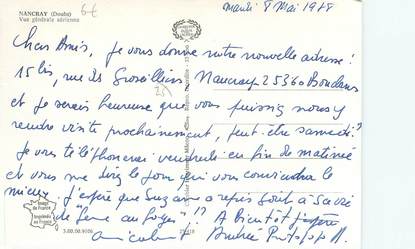 NANCRAY (Doubs)
Vue générale aérienne
6€
Mardi 8 Mai 1978
Chers Amis, je vous donne notre nouvelle adresse :
15 bis, rue des Groseilliers, Nancray 25360 Bouclans
et je serais heureuse que vous puissiez nous y
rendre visite prochainement, peut-être samedi ?
Je vous téléphonerai vendredi en fin de matinée
et vous me direz le jour qui vous conviendra le
mieux. J'espère que Suzanne a repris goût à
de " " !? A Bientôt j'espère
Amicalement Andrée
Image de France
Imprimée en France
3.00.00.9106